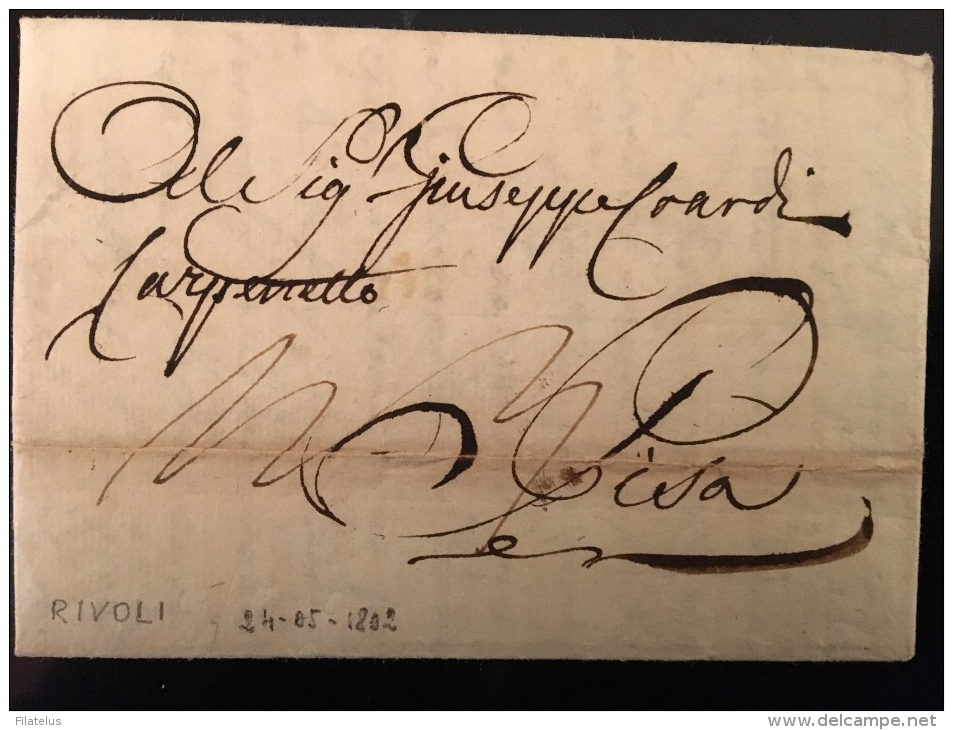 Al Sig.r Giuseppe Coardi
Carpenetto
Pisa
RIVOLI 24-05-1802
Filatelus
www.delcampe.net